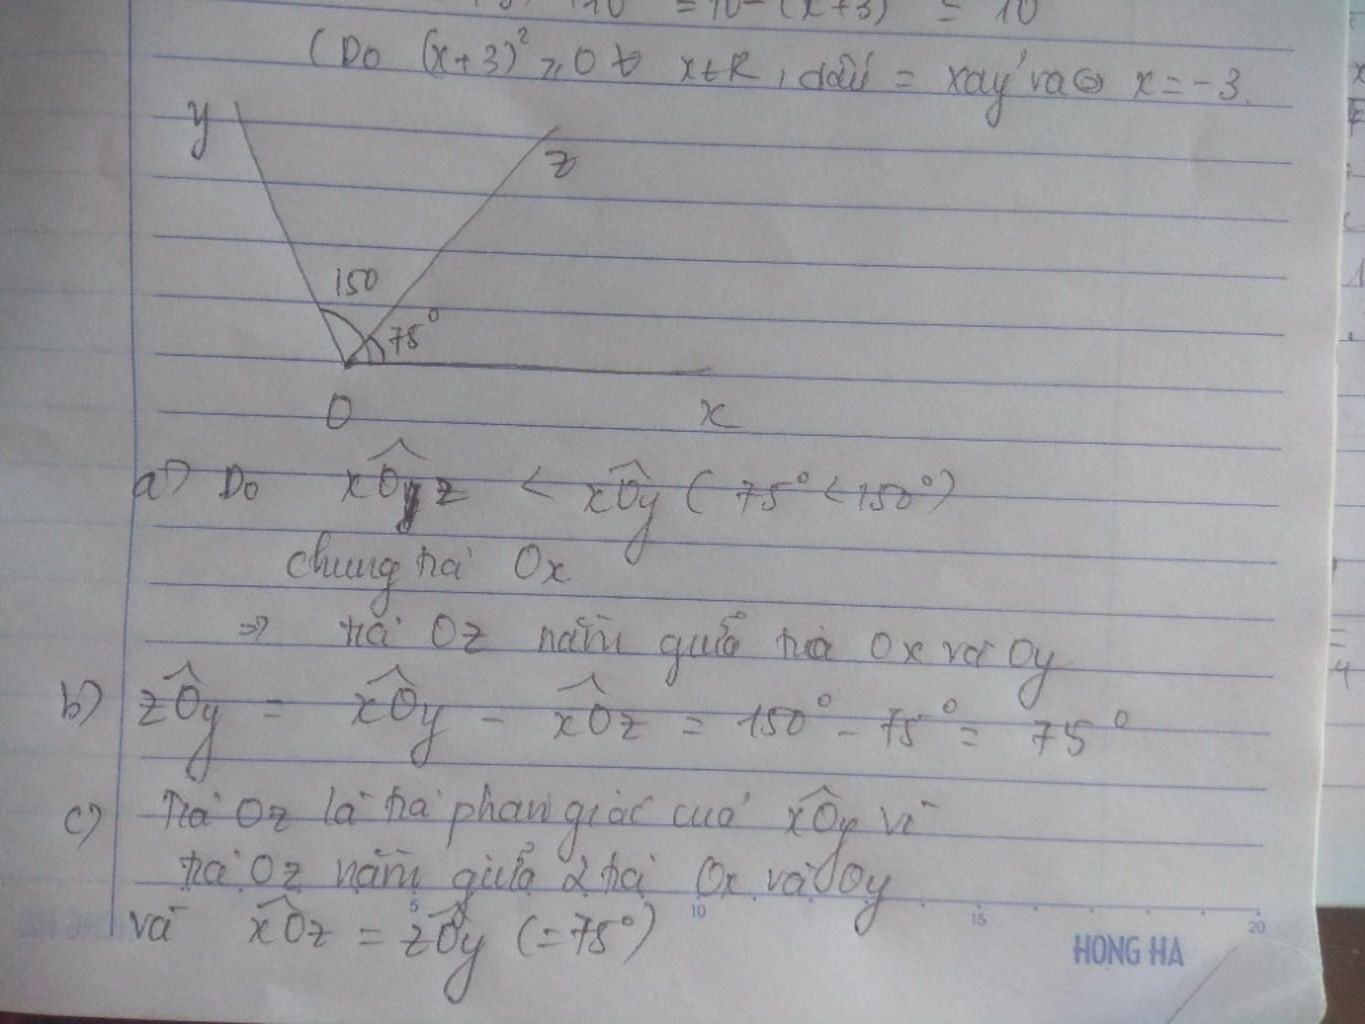 = 10 - (x+3) = 10
(Do (x+3)² ≥ 0 ∀ x ∈ R, dấu = xảy ra ⇔ x = -3.
y
z
150
75°
O x
a) Do xÔz < xÔy (75° < 150°)
chung tia Ox
=> tia Oz nằm giữa tia Ox và Oy
b) zÔy = xÔy - xÔz = 150° - 75° = 75°
c) Tia Oz là tia phân giác của xÔy vì
tia Oz nằm giữa 2 tia Ox và Oy
và xÔz = zÔy (= 75°)
5 10 15 20
HONG HA